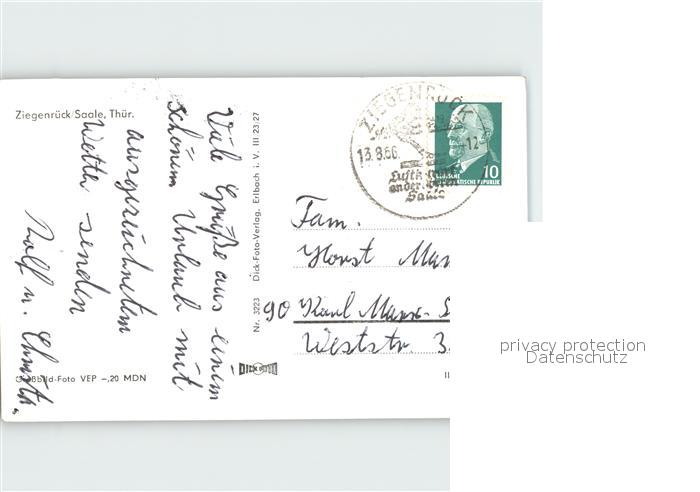 Ziegenrück/Saale, Thür.
Viele Grüße aus einem
schönem Urlaub mit
ausgezeichnetem
Wetter senden
Rolf u. Christa.
Großbild-Foto VEP –,20 MDN
Nr. 3223 Dick-Foto-Verlag, Erlbach i. V. III/23/27
DICK
ZIEGENRÜCK
13.8.66
-12
Luftk
an der oberen
Saale
DEUTSCHE
DEMOKRATISCHE REPUBLIK
10
Fam.
Horst
90 Karl-Marx-
Weststr. 3
privacy protection
Datenschutz